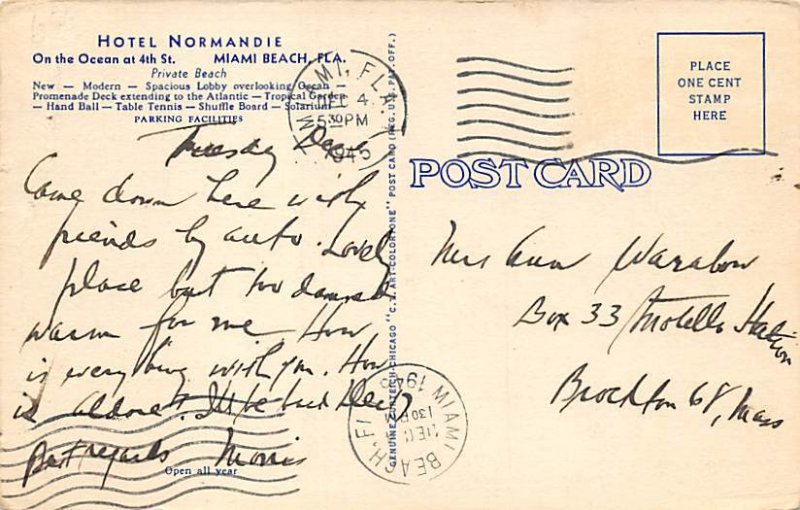 HOTEL NORMANDIE
On the Ocean at 4th St. MIAMI BEACH, FLA.
Private Beach
New — Modern — Spacious Lobby overlooking Ocean —
Promenade Deck extending to the Atlantic — Tropical Garden
— Hand Ball — Table Tennis — Shuffle Board — Solarium
PARKING FACILITIES
Tuesday Dec
Came down here with
friends by auto. Lovely
place but too damned
warm for me. How
is everything with you. How
is I'll be back Dec
Best regards Morris
Open all year
MIAMI, FLA
DEC 4
5 30 PM
1945
GENUINE CURTEICH-CHICAGO "C. T. ART-COLORTONE" POST CARD (REG. U.S. PAT. OFF.)
MIAMI BEACH FL
DEC
130
1945
PLACE
ONE CENT
STAMP
HERE
POST CARD
Mrs Ann Warabow
Box 33 Station
Brockton 68, Mass